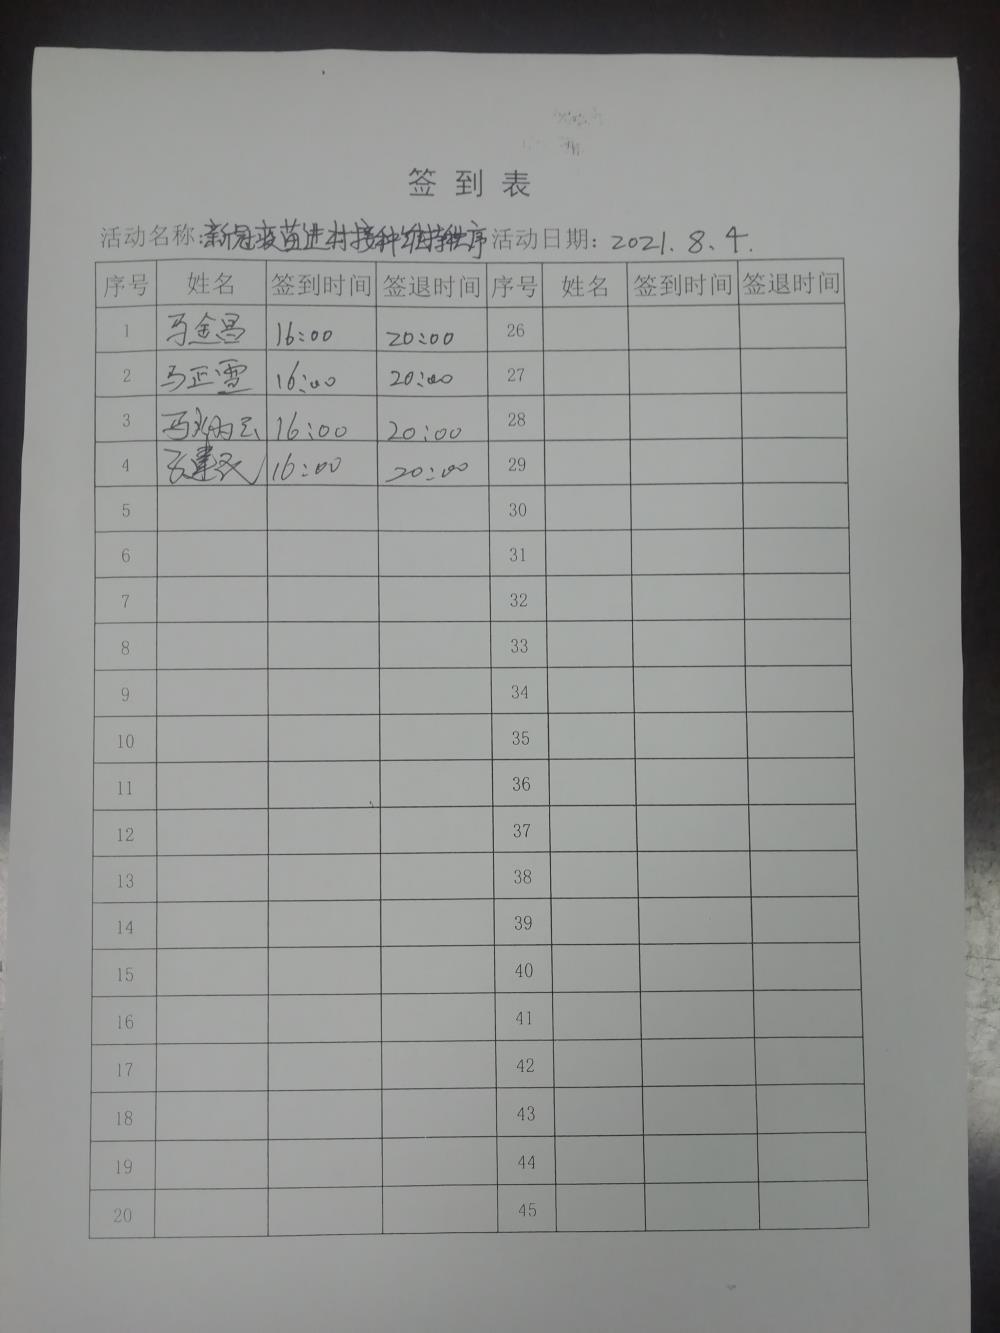 签到表
活动名称:新冠疫苗进村接种维持秩序 活动日期: 2021.8.4.
序号 姓名 签到时间 签退时间 序号 姓名 签到时间 签退时间
1 马金昌 16:00 20:00 26
2 马正雪 16:00 20:00 27
3 马炳云 16:00 20:00 28
4 建 16:00 20:00 29
5 30
6 31
7 32
8 33
9 34
10 35
11 36
12 37
13 38
14 39
15 40
16 41
17 42
18 43
19 44
20 45